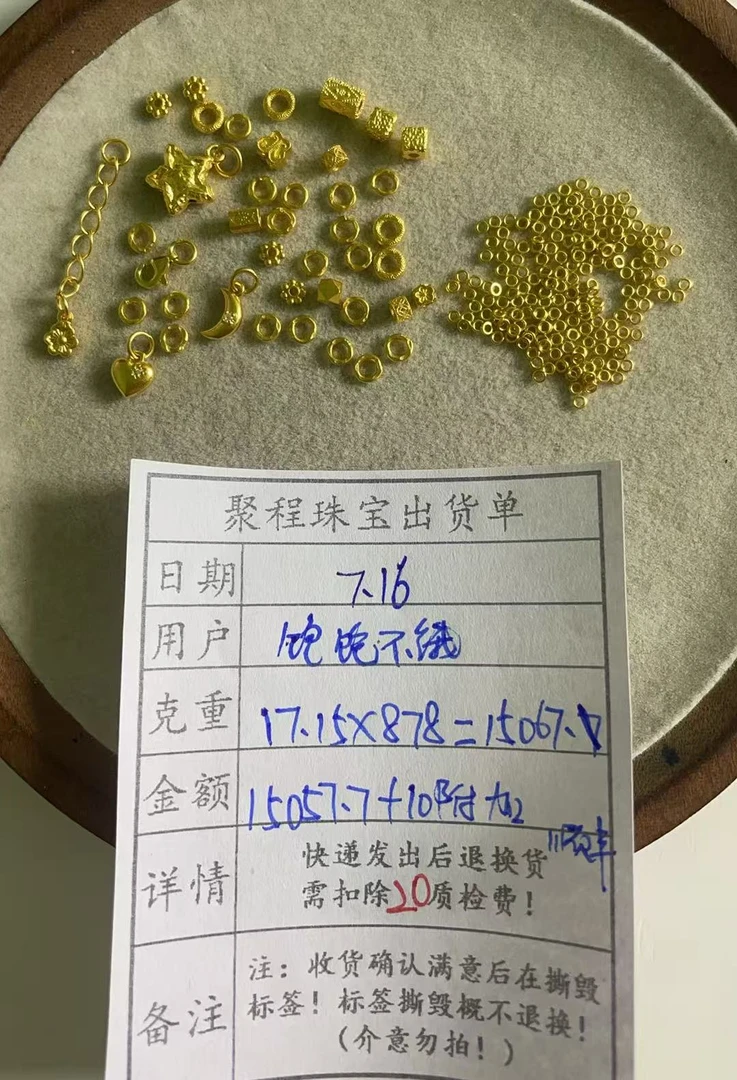 聚程珠宝出货单
日期 7.16
用户 饱饱不饿
克重 17.15×878=15067.7
金额 15057.7+10附加2
顺丰
详情 快递发出后退换货
需扣除20质检费!
备注 注:收货确认满意后在撕毁
标签!标签撕毁概不退换!
(介意勿拍!)